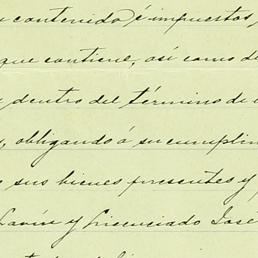 contenido é impuestos,
que contiene, así como de
dentro del término de
, obligando á su cumplim
sus bienes presentes y
Lavín y Licenciado José